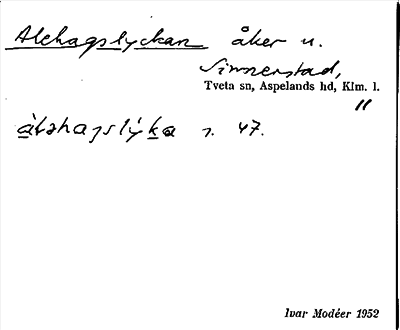 Alehagslyckan åker u.
Simnerstad,
Tveta sn, Aspelands hd, Klm. l.
"
s. 47.
Ivar Modéer 1952